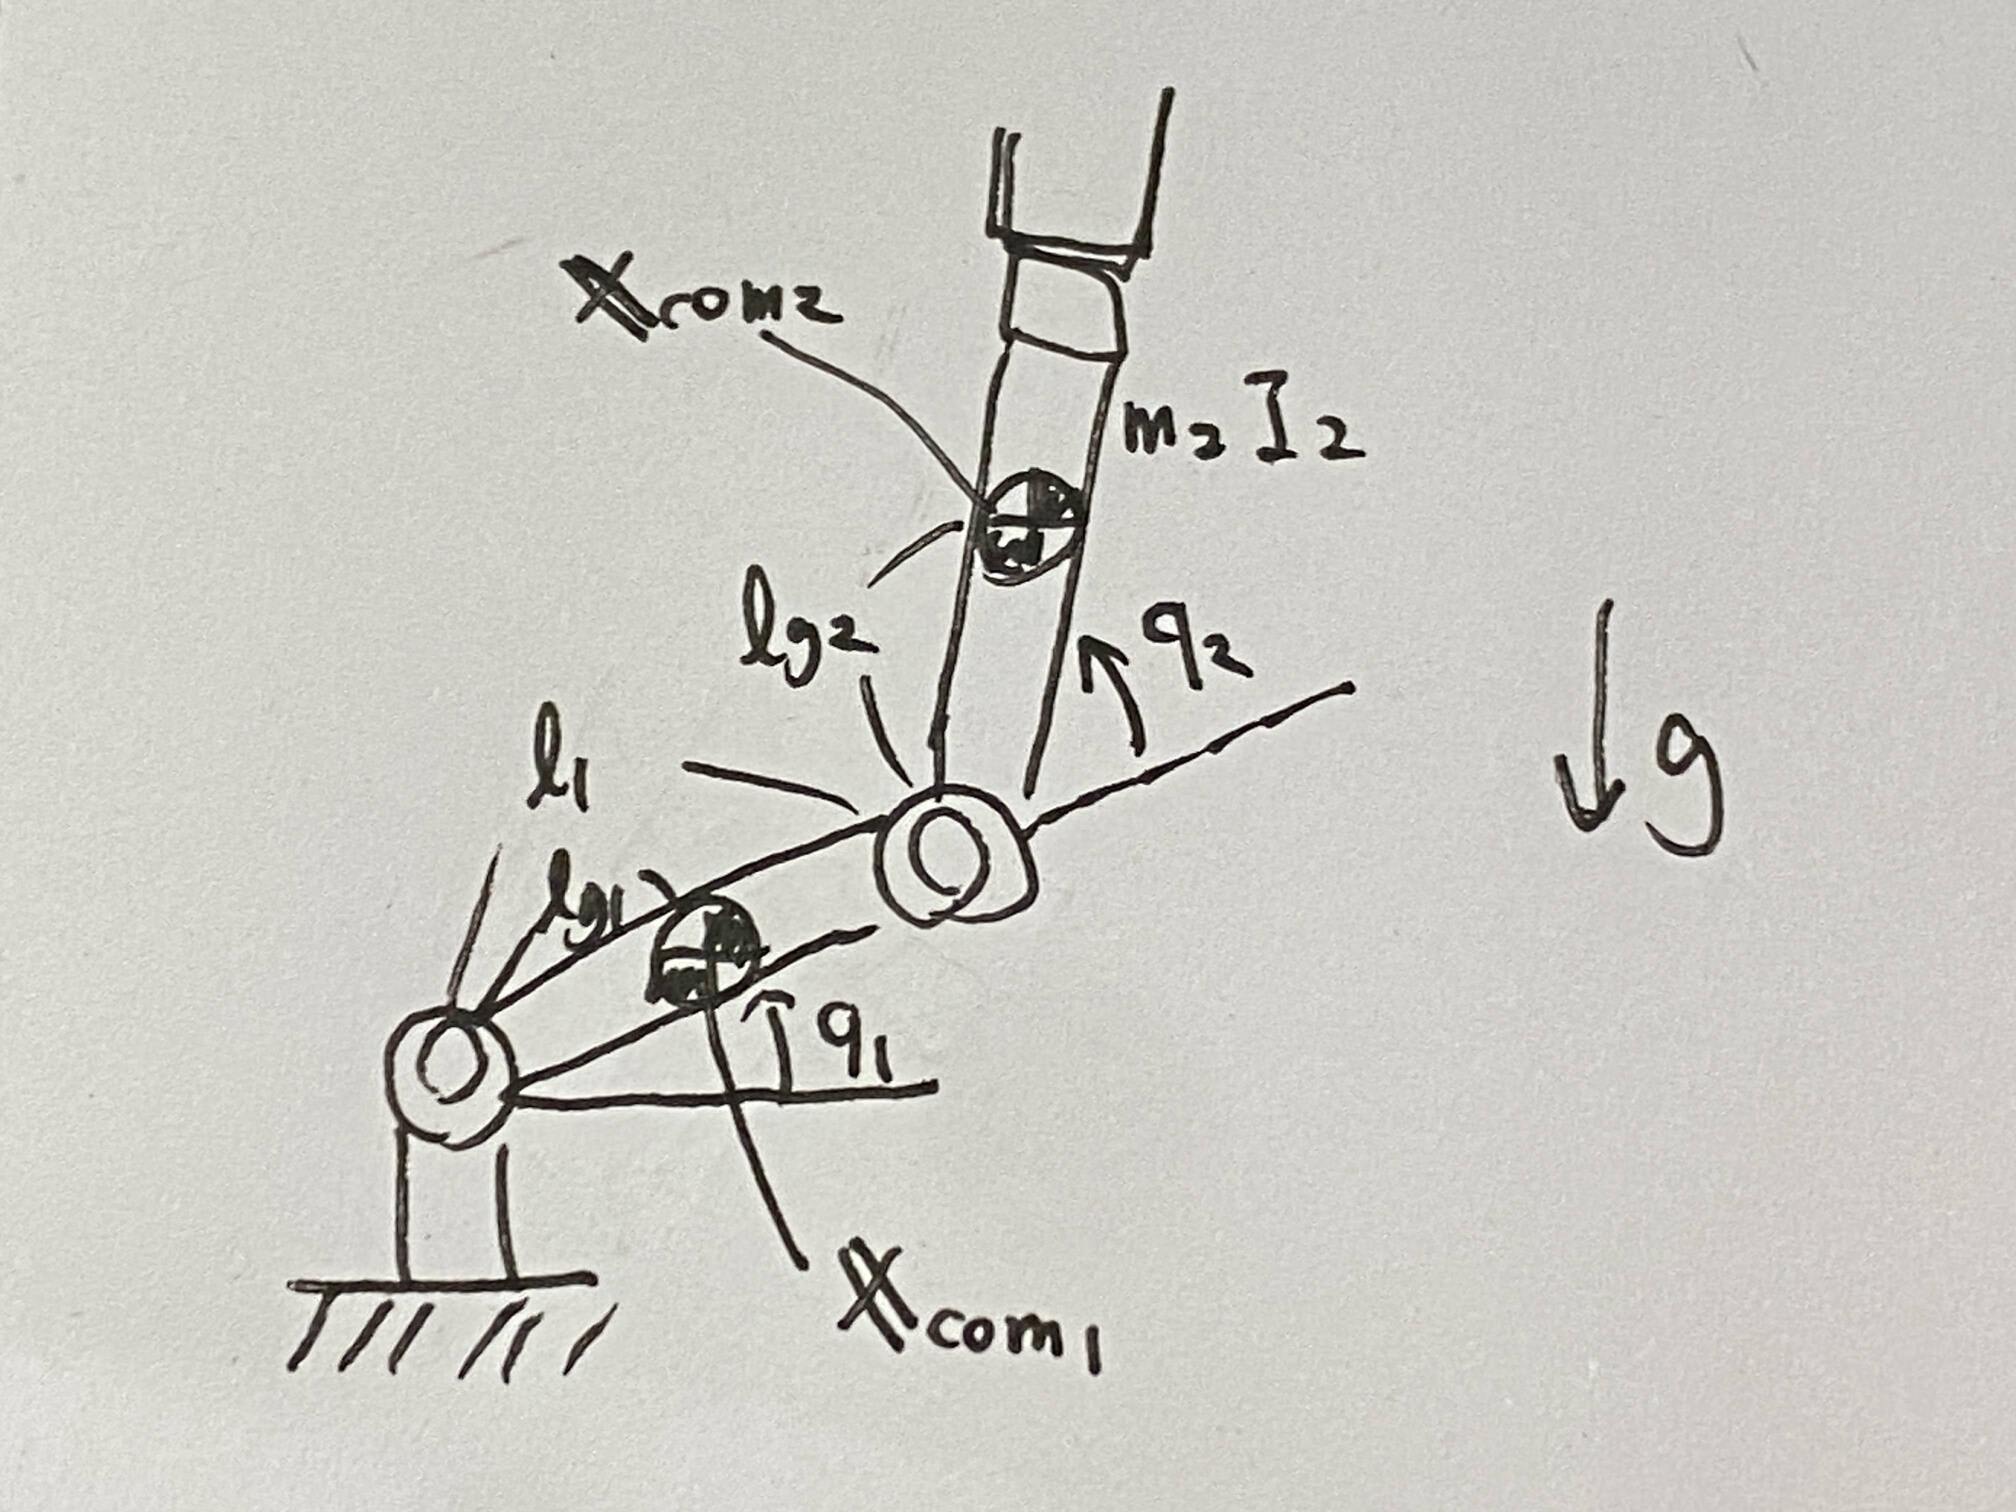 Xcom2
m2 I2
lg2
q2
l1
g
lg1
q1
Xcom1